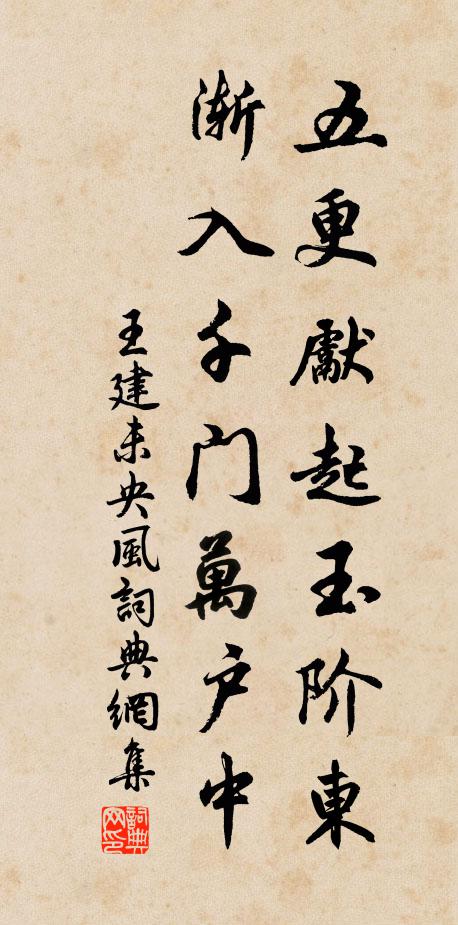 五更獻起玉阶東
漸入千门萬户中
王建未央風詞典網集
詞典
网印